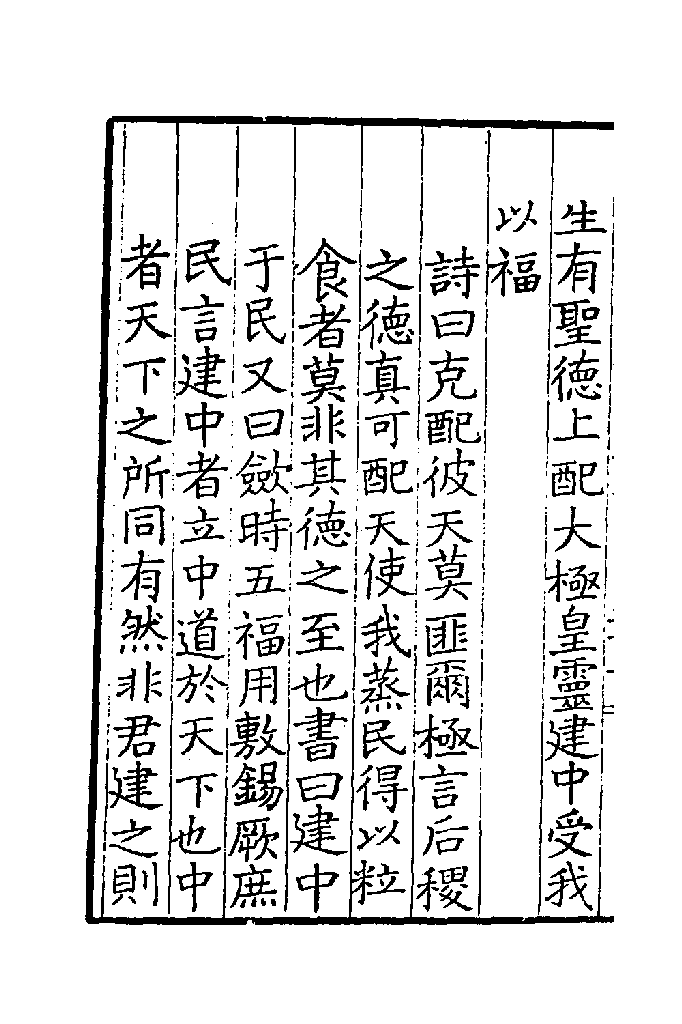 生有聖德上配大極皇靈建中受我
以福
詩曰克配彼天莫匪爾極言后稷
之德真可配天使我蒸民得以粒
食者莫非其德之至也書曰建中
于民又曰歛時五福用敷錫厥庶
民言建中者立中道於天下也中
者天下之所同有然非君建之則